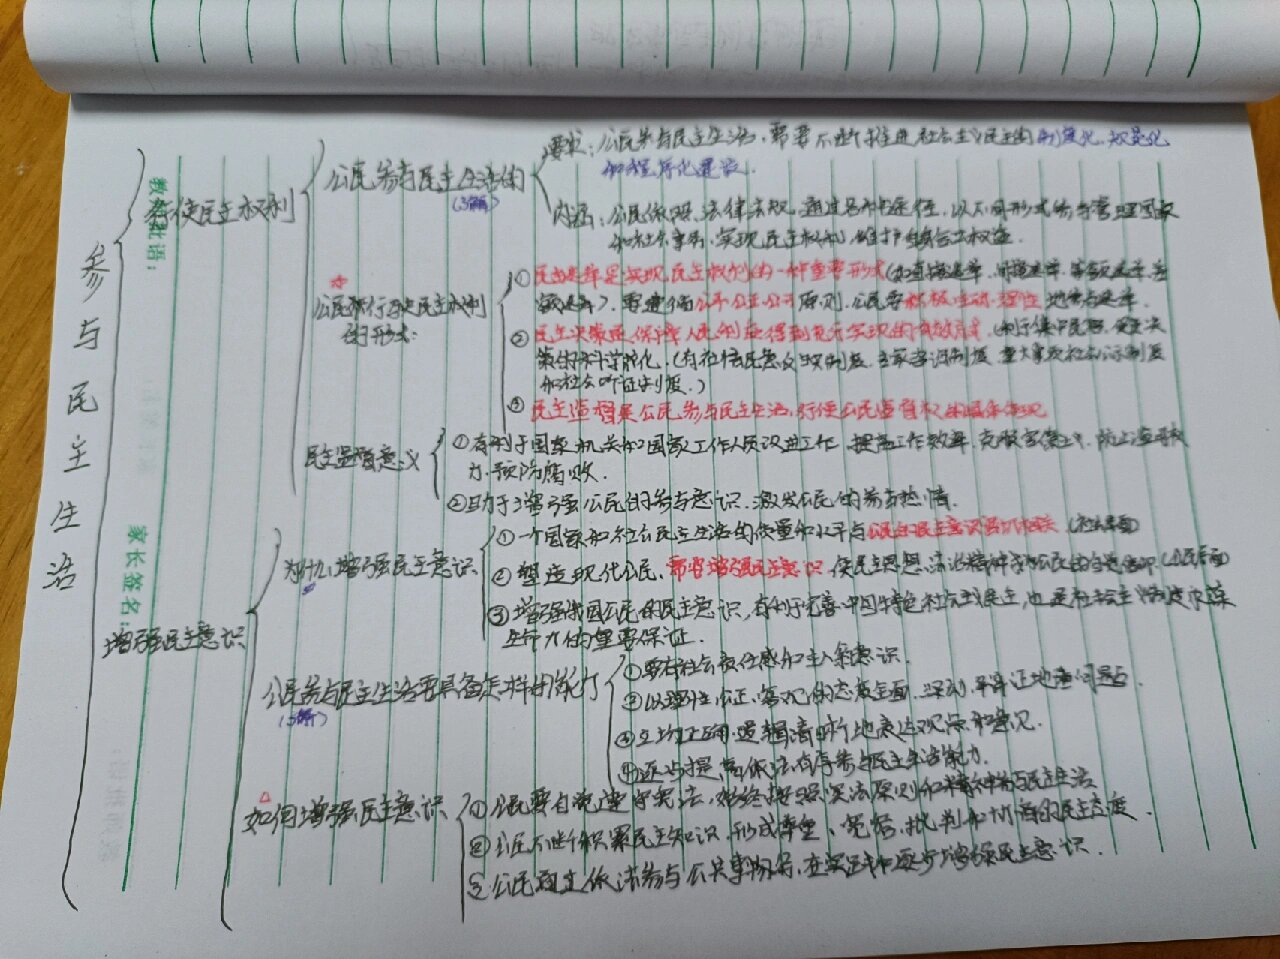 教师批语：
家长签名：
参与民主生活
行使民主权利
公民参与民主生活的
(了解)
要求：公民参与民主生活，需要不断推进社会主义民主的制度化、规范化
和程序化建设.
内涵：公民依照法律法规，通过各种途径，以不同形式参与管理国家
和社会事务，实现民主权利，维护合法权益.
公民行使民主权利
的形式：
①民主选举是实现民主权利的一种重要形式(如直接选举、间接选举、等额选举、差
额选举)，要遵循公平公正公开原则，公民要积极主动理性地参与选举.
②民主决策是保障人民利益得到充分实现的有效方式，(利于集中民智，促进决
策的科学化.(有社情民意反映制度、专家咨询制度、重大事项社会公示制度
和社会听证制度.)
③民主监督是公民参与民主生活，行使公民监督权的具体体现
民主监督意义
①有利于国家机关和国家工作人员改进工作，提高工作效率，克服官僚主义，防止滥用权
力，预防腐败.
②助于增强公民的参与意识，激发公民的参与热情.
增强民主意识
为什么增强民主意识
①一个国家和社会民主生活的质量和水平与公民的民主意识密切相关(社会层面)
②塑造现代公民，需要增强民主意识，使民主思想、法治精神成为公民的自觉信仰(公民层面)
③增强我国公民的民主意识，有利于完善中国特色社会主义民主，也是社会主义制度永葆
生命力的重要保证.
公民参与民主生活需具备怎样的能力
(了解)
①要有社会责任感和主人翁意识.
②以理性、公正、客观的态度全面、深入、辩证地看问题
③立场正确、逻辑清晰地表达观点和意见.
④逐步提高依法有序参与民主生活能力.
如何增强民主意识
①公民要自觉遵守宪法，始终按照宪法原则和精神参与民主生活
②公民不断积累民主知识，形成尊重、宽容、批判和协商的民主态度.
③公民通过依法参与公共事务，在实践中逐步增强民主意识.